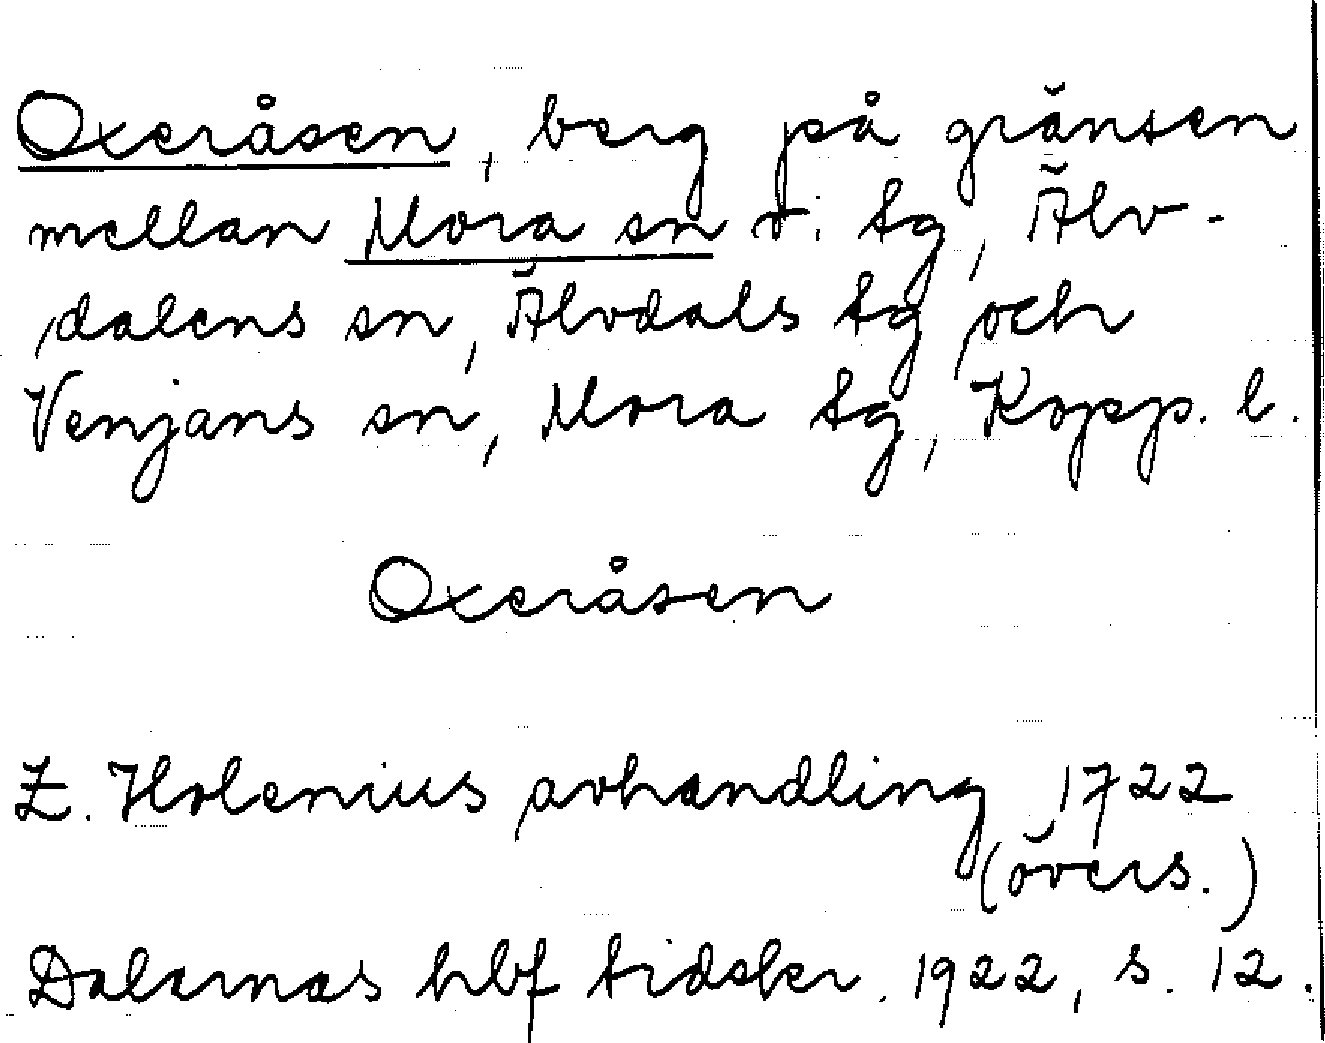 Oxeråsen, berg på gränsen
mellan Mora sn o. tg, Älv-
dalens sn, Älvdals tg och
Venjans sn, Mora tg, Kopp. l.
Oxeråsen
Z. Holenius avhandling 1722
(övers.)
Dalarnas hbf tidskr. 1922, s. 12.